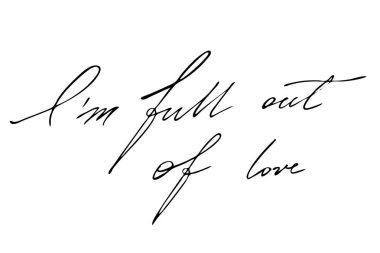 I'm full out
of love